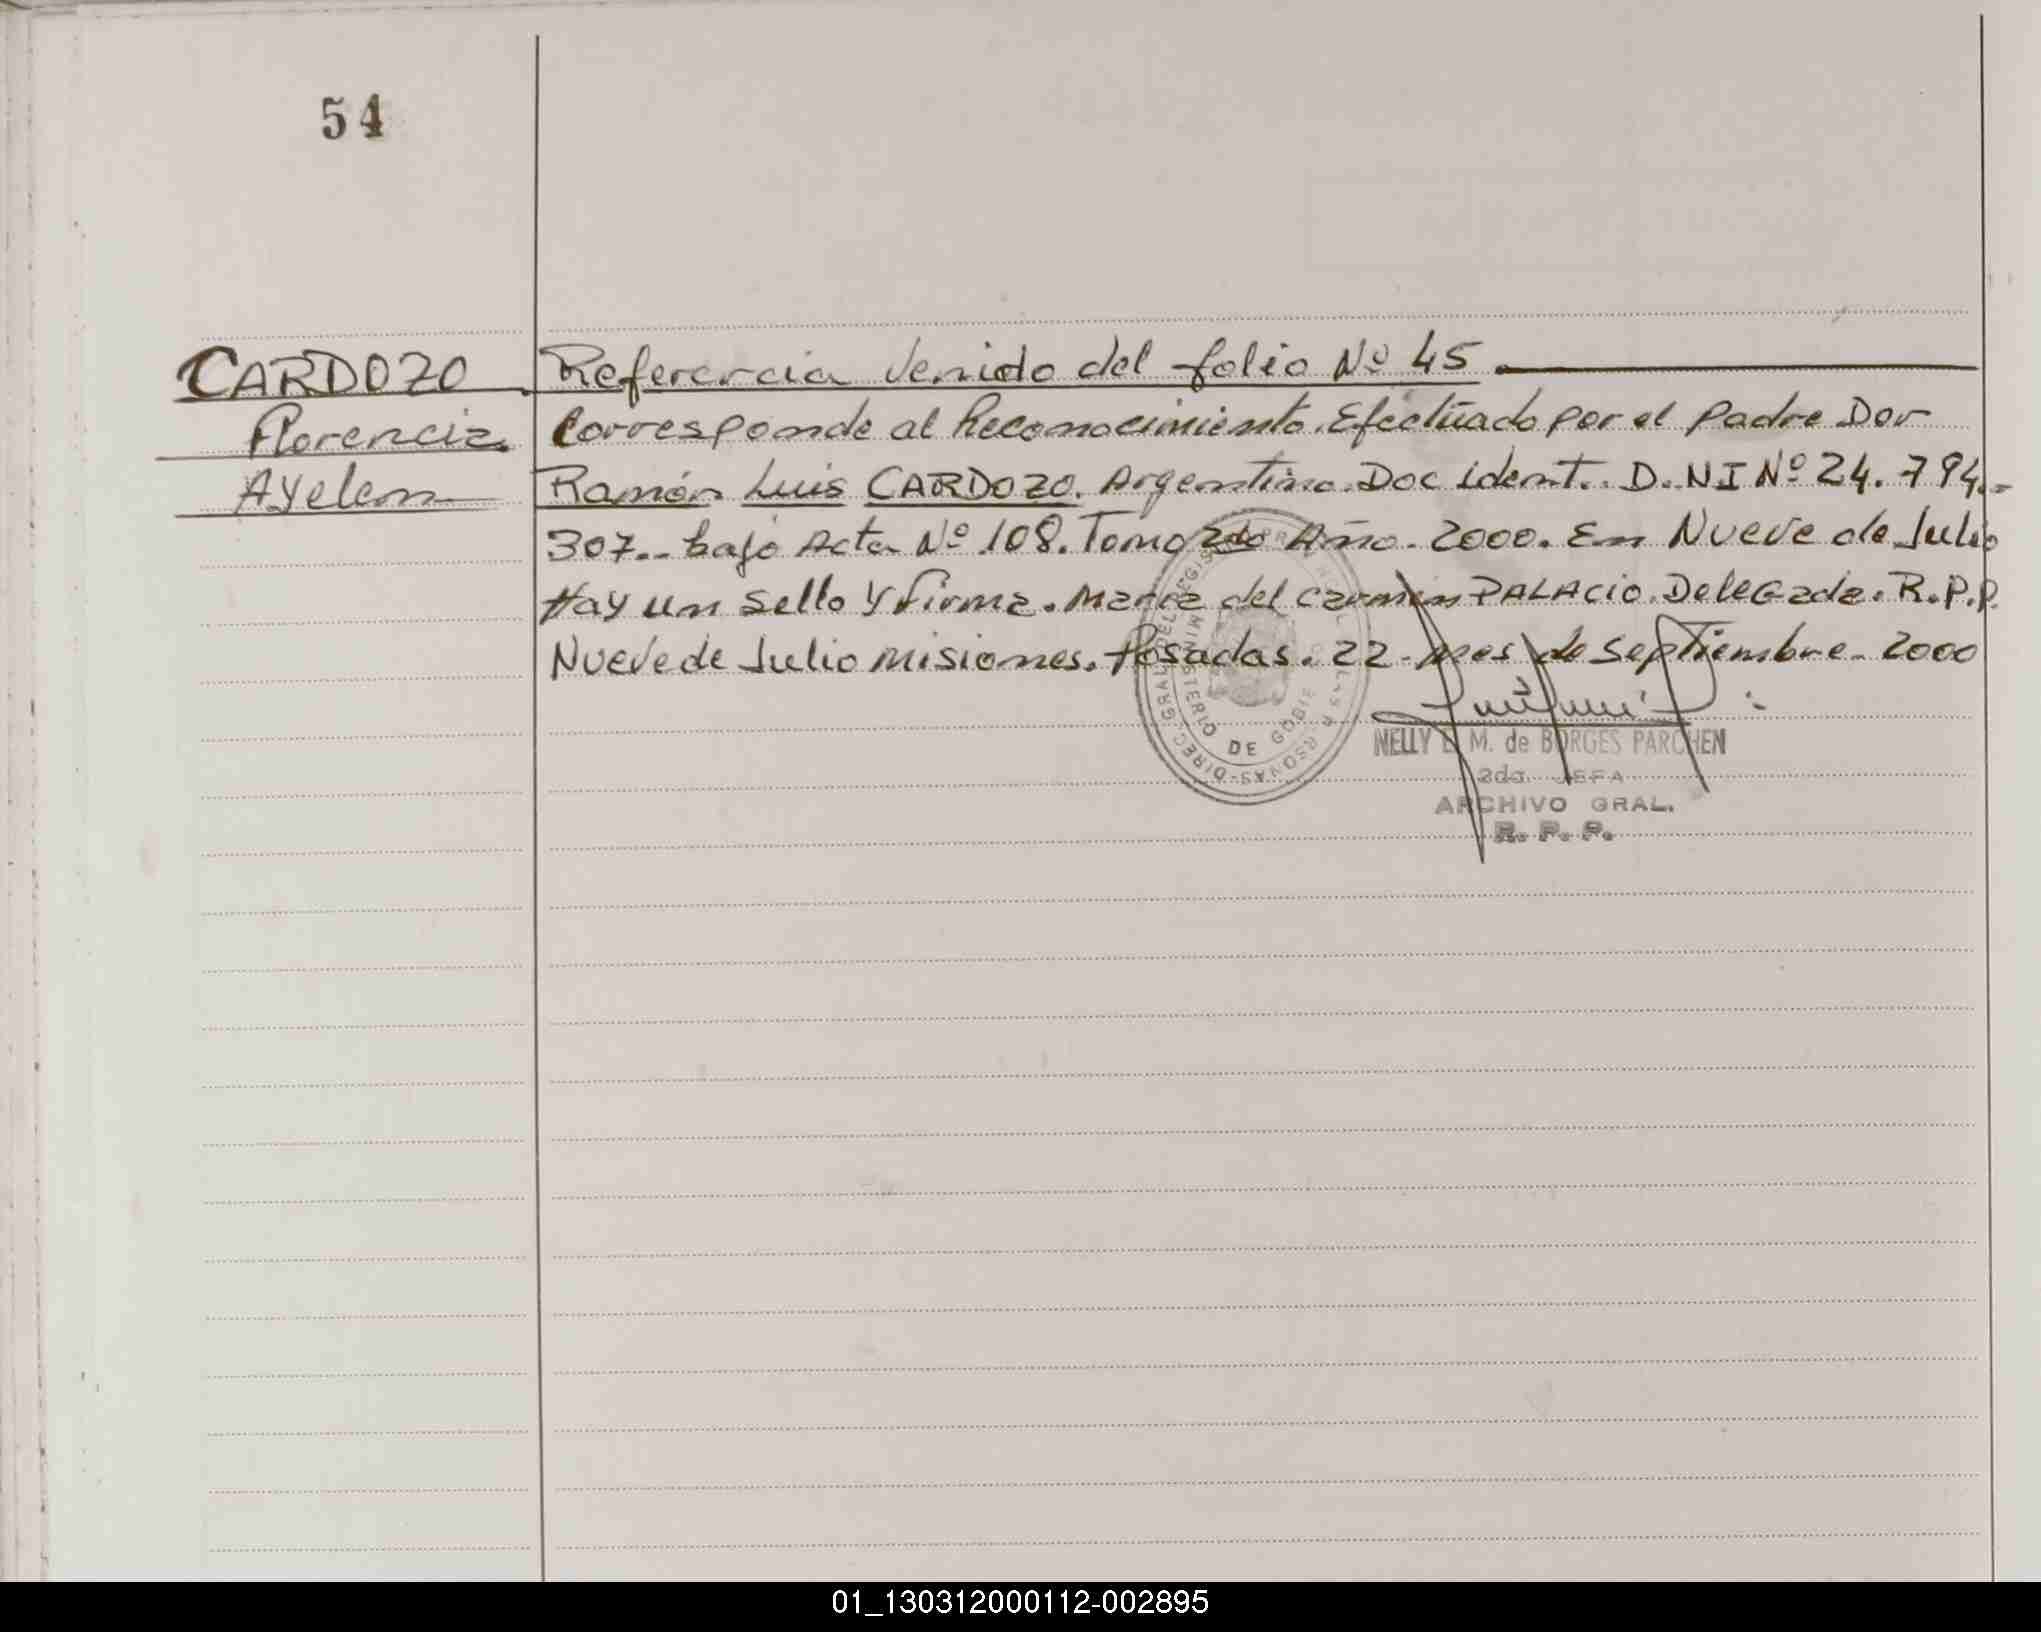 54
CARDOZO
Florencia
Ayelen
Referencia Venido del folio Nº 45
Corresponde al Reconocimiento. Efectuado por el padre Dor
Ramón Luis CARDOZO. Argentino. Doc ident.. D. NI Nº 24. 794.-
307.- bajo Acta Nº 108. Tomo 2do Año. 2000. En Nueve de Julio
Hay un sello y firma. Maria del Carmen PALACIO. Delegada. R.P.P.
Nueve de Julio Misiones. Posadas. 22 mes de Septiembre 2000
MINISTERIO DE GOBIE
NELLY M. de BORGES PARCHEN
2da. JEFA
ARCHIVO GRAL.
R. P. P.
01_130312000112-002895